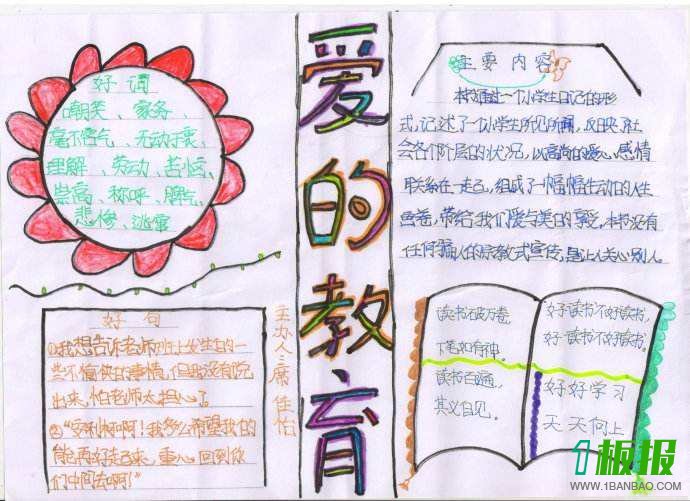 好词
嘲笑、家务、
毫不客气、无动于衷、
理解、劳动、苦恼、
崇高、称呼、脾气、
悲惨、逃学
好句
①我想告诉老师班上发生的一
些不愉快的事情，但我没有说
出来，怕老师太担心了。
②“安利柯啊！我多么希望我的
能再好起来，重新回到你
们中间去啊！”
主办人：席佳怡
爱的教育
主要内容
本书通过一个小学生日记的形
式，记述了一个小学生所见所闻，反映了社
会各个阶层的状况，以高尚的爱心、感情
联系在一起，组成了一幅幅生动的人生
画卷，带给我们爱与美的享受，本书没有
任何骗人的宗教式宣传，是让人关心别人。
读书破万卷，
下笔如有神。
读书百遍，
其义自见。
好读书不好读书，
好读书不好读书。
好好学习
天天向上
1板报
WWW.1BANBAO.COM